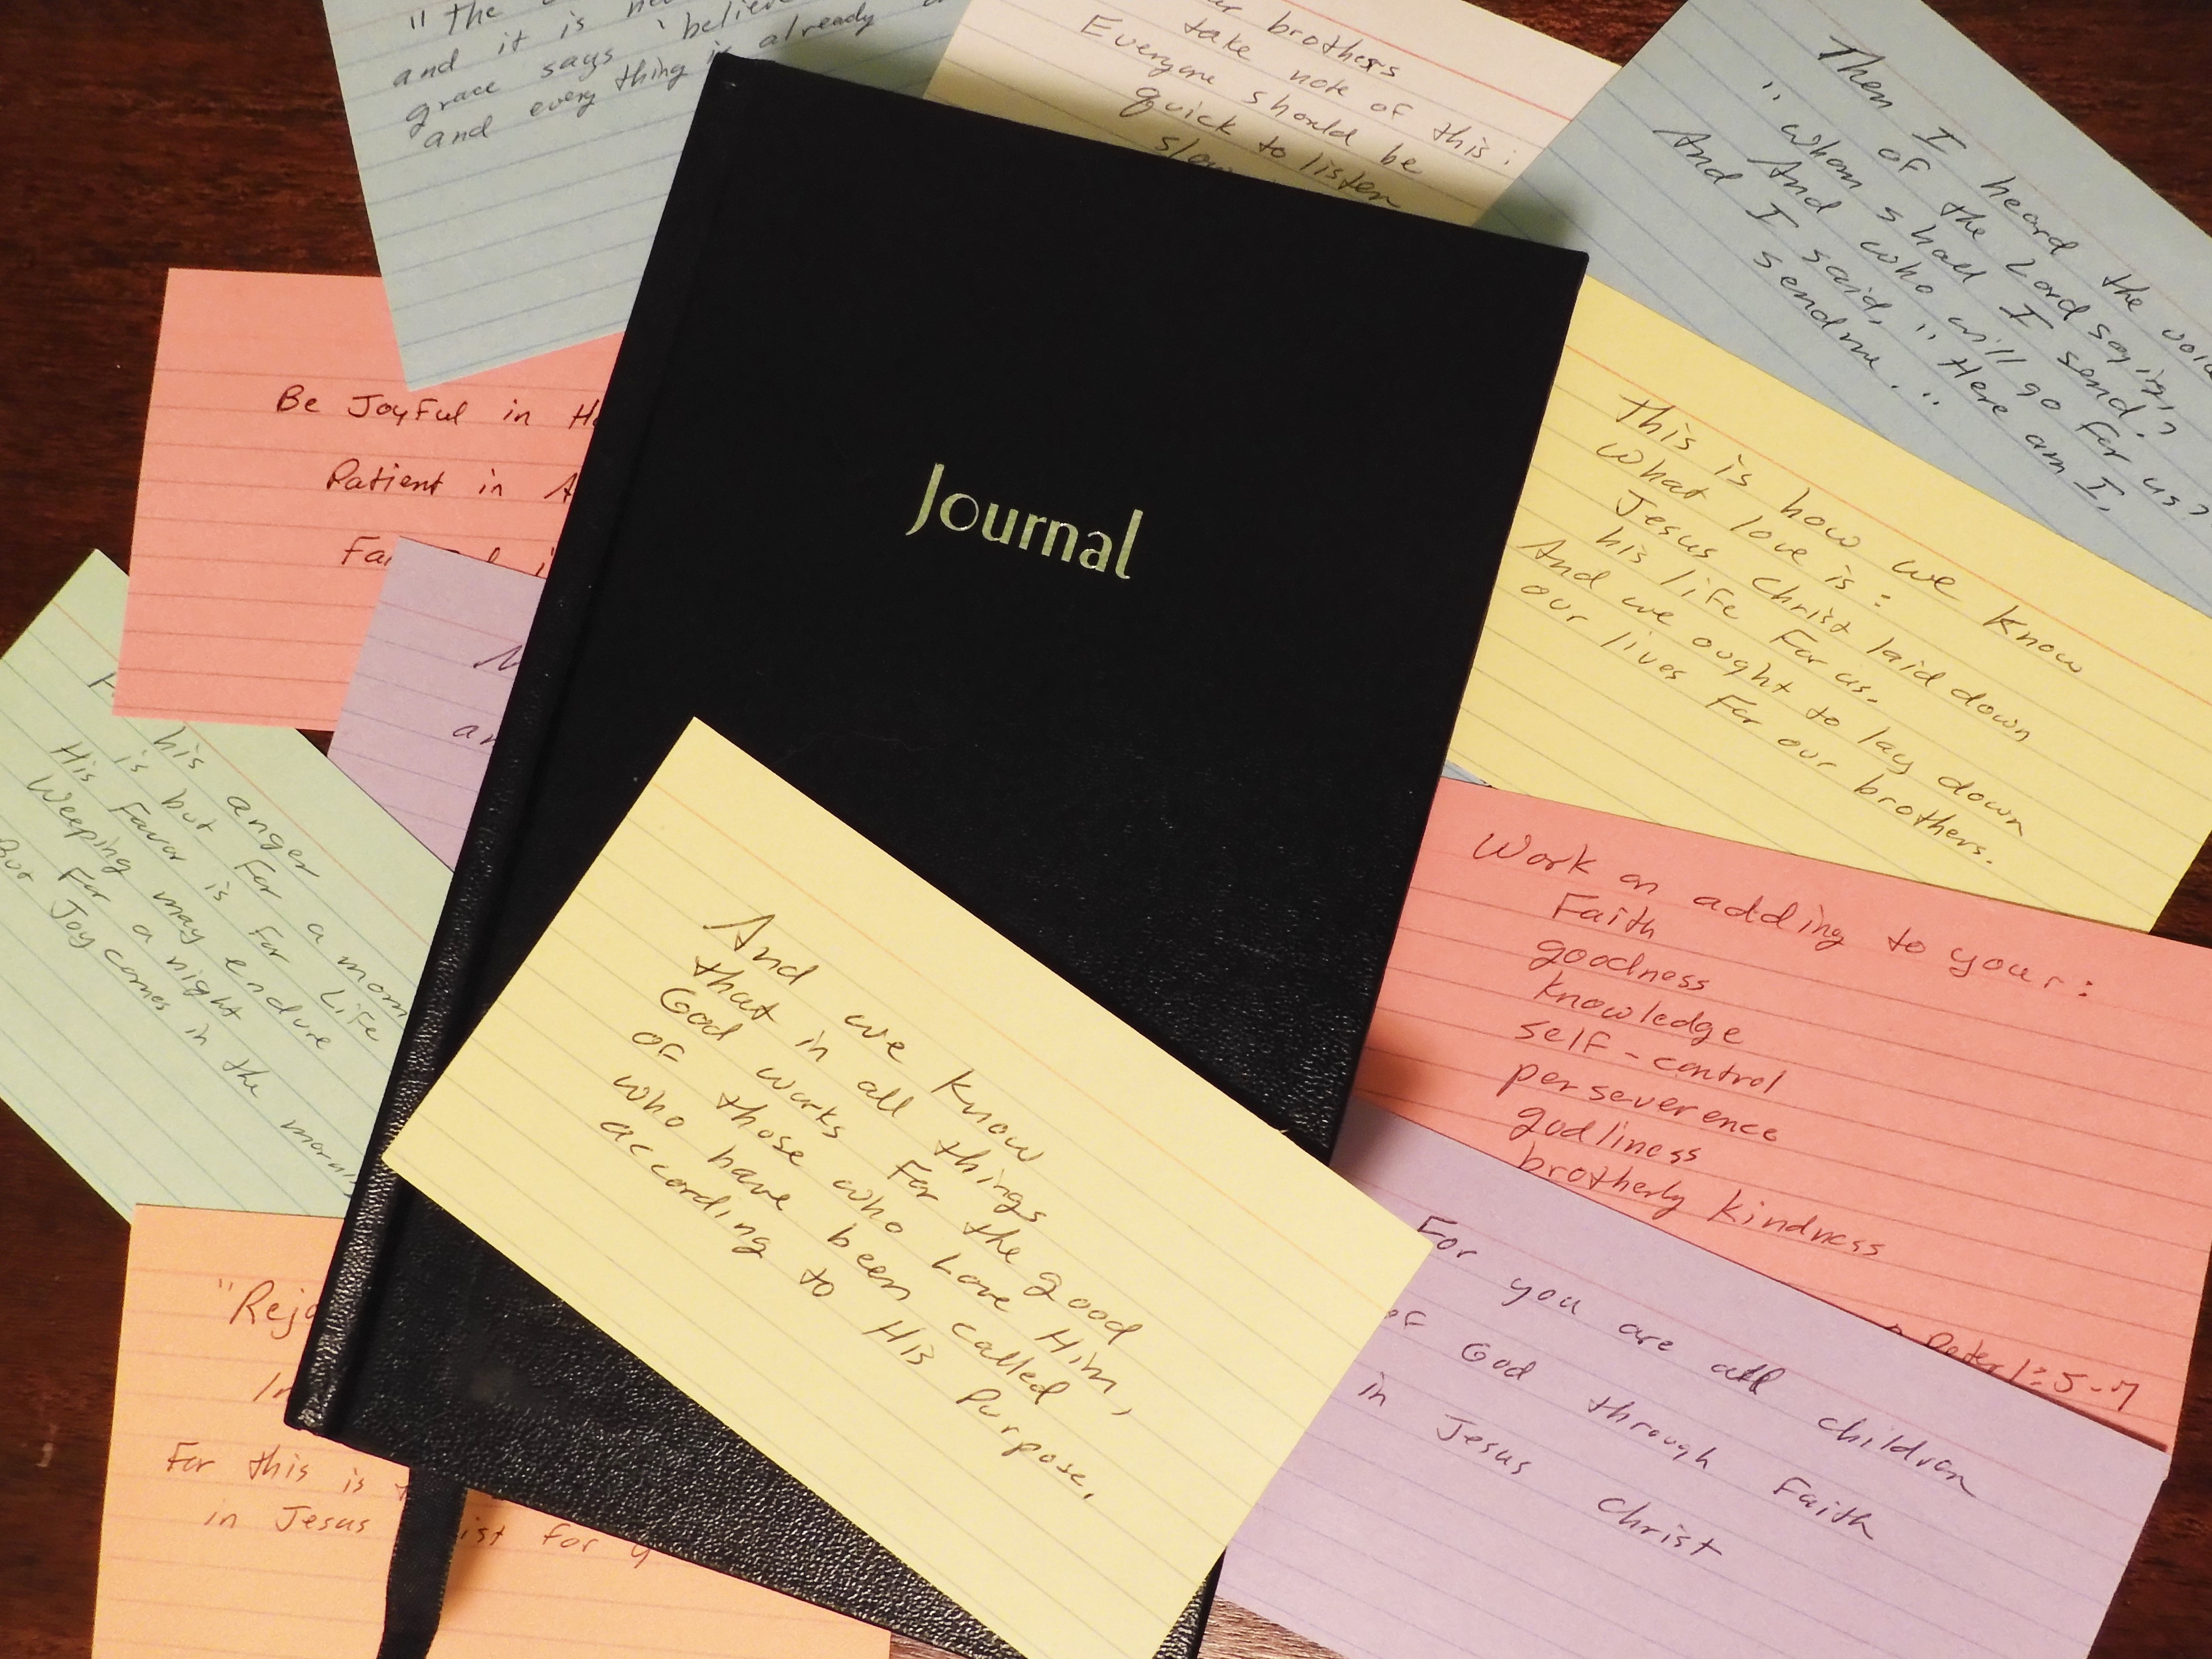 "the
and it is
grace says 'believe
and every thing is already
brothers
take note of this:
Everyone should be
quick to listen
Then I heard the
of the Lord saying,
"whom shall I send?
And who will go for us?
And I said, "Here am I,
send me."
Be Joyful in
Patient in
Journal
This is how we know
what love is:
Jesus Christ laid down
his life for us.
And we ought to lay down
our lives for our brothers.
his anger
is but for a
His Favor is for Life
Weeping may endure
For a night
But Joy comes in the
Work on adding to your:
Faith
goodness
knowledge
self-control
perseverence
godliness
brotherly kindness
Peter 1:5-7
And we know
that in all things
God works for the good
of those who Love Him,
who have been called
according to His Purpose.
For you are all children
of God through Faith
in Jesus Christ
For this is
in Jesus for